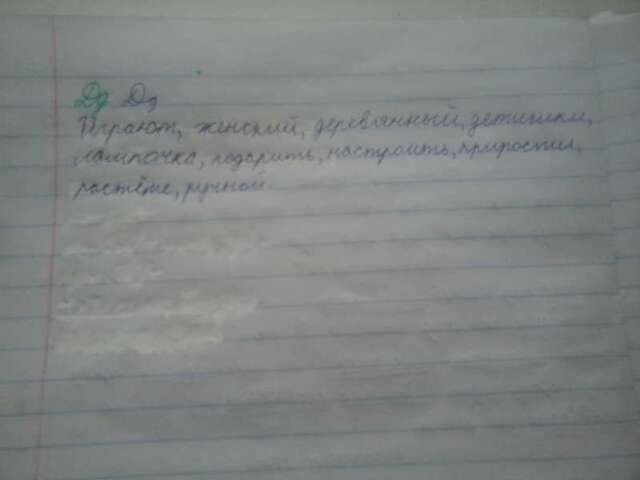 Дд Дд
Играют, женский, деревянный, детишки,
лампочка, подарить, настроить,
растёте, ручной